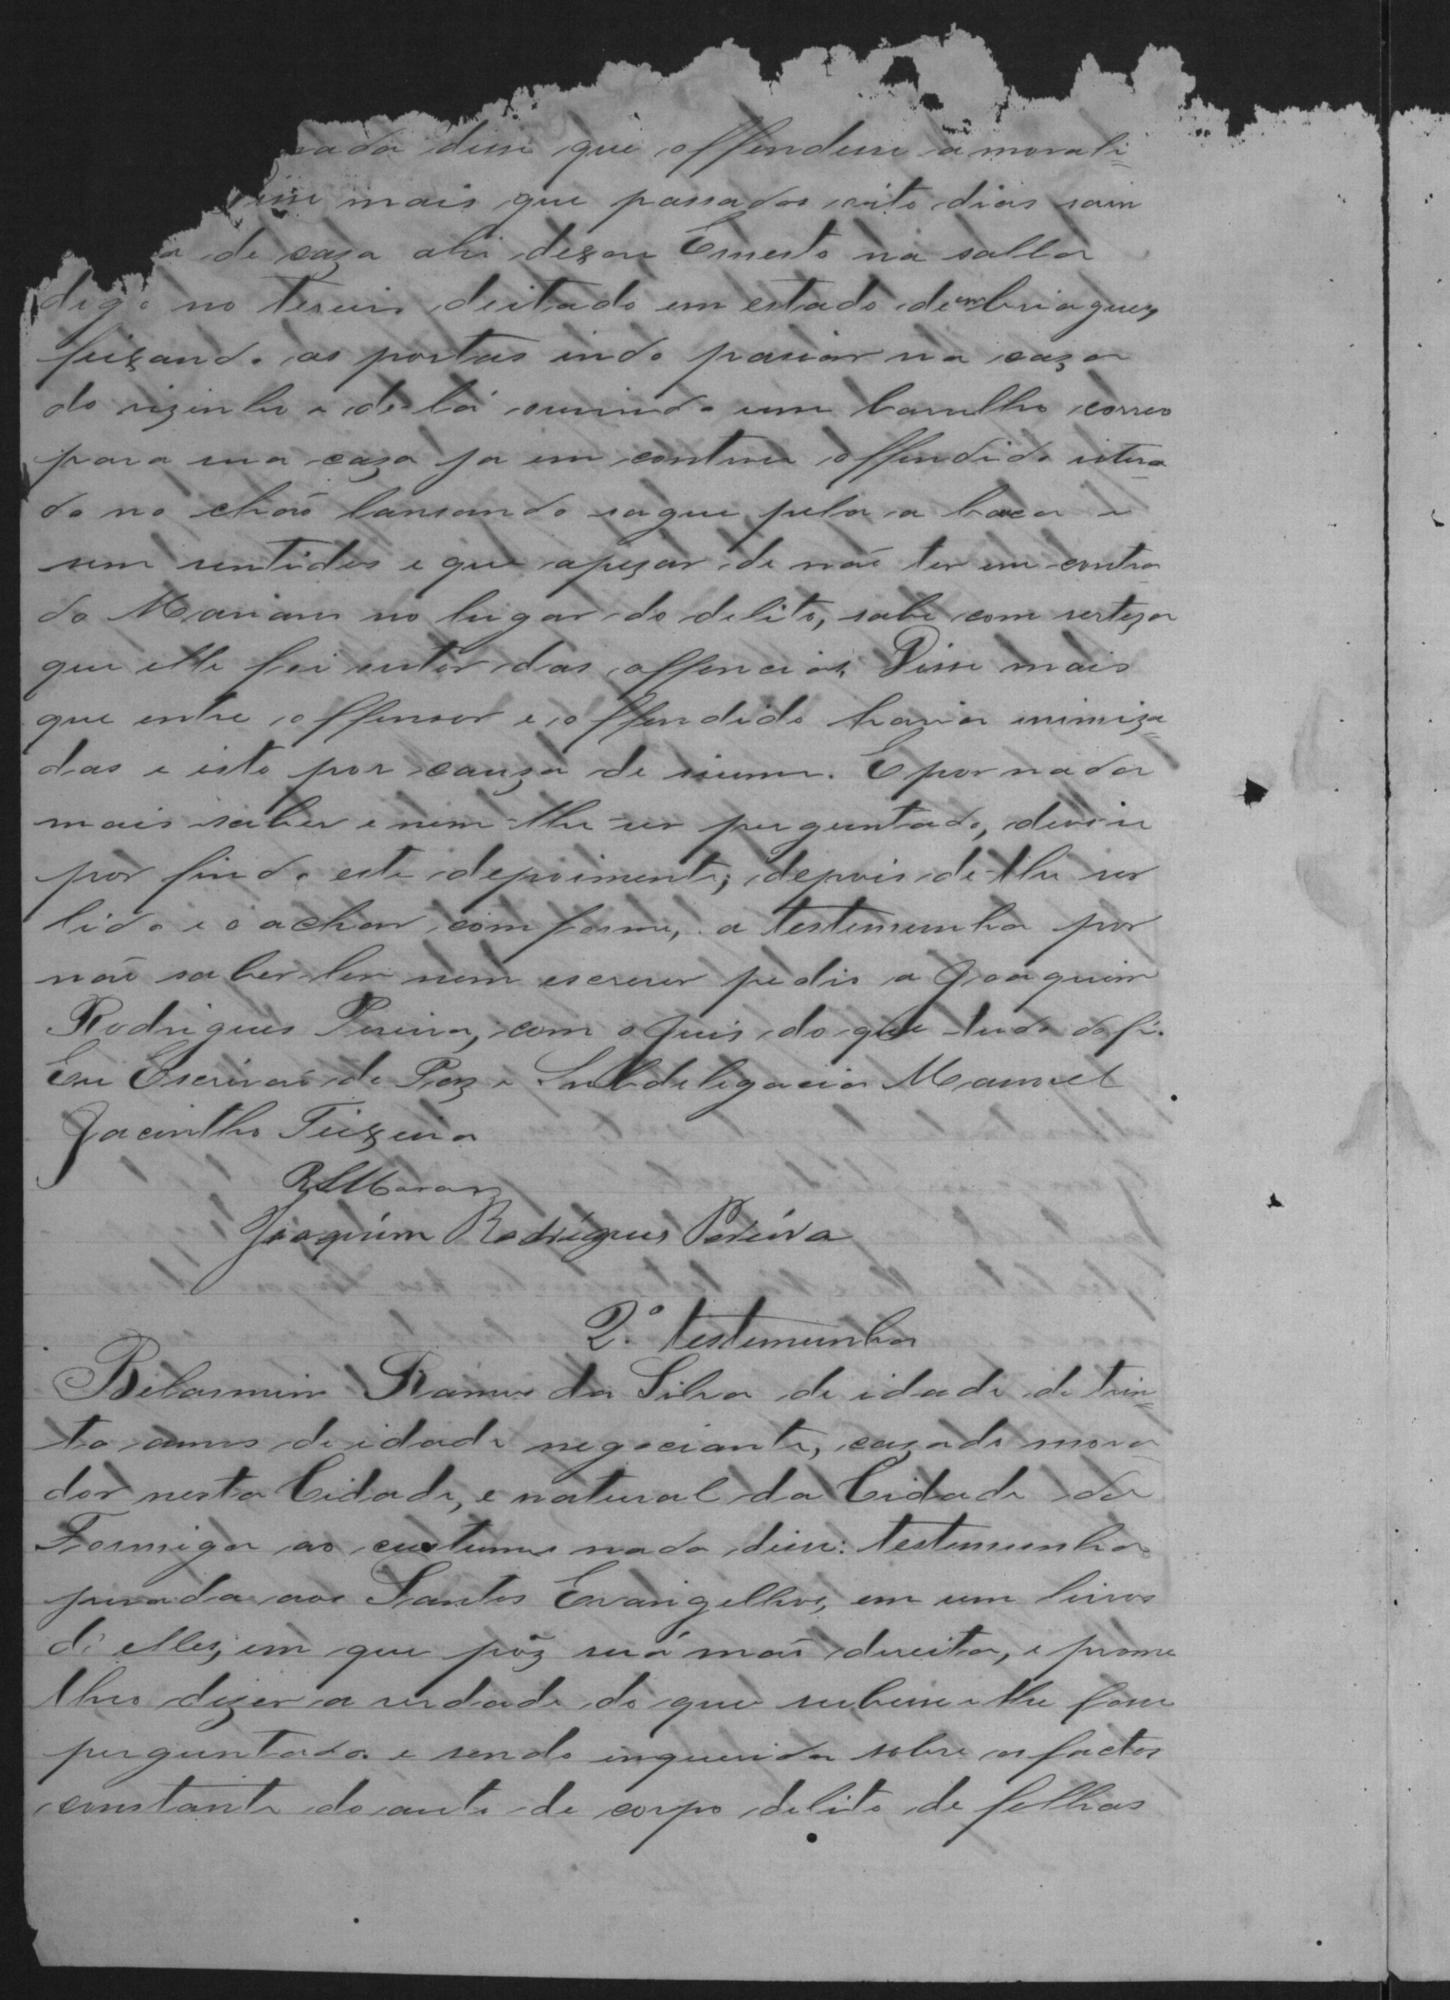 nada disse que offendesse a morali=
isse mais que passados oito dias sain
a de caza ahi dexou Ernesto na salla
digo no terreiro deitado em estado de embriaguez
feixando as portas indo passiar na caza
do vizinho e de lá ouvindo um barulho correo
para sua caza ja em controu offendido istira
do no chão lansando sague pela a boca e
sem sentidos e que apezar de não ter em contra
do Mariano no lugar do delito, sabe com serteza
que elle foi autor das offencias. Disse mais
que entre offensor e offendido havia inimiza=
das e isto por cauza de siume. E por nada
mais saber e nem lhe ser perguntado, deu-se
por findo este depoimento; depois de lhe ser
lido e o achar comforme, a testemunha por
não saber ler nem escrever pedio a Joaquim
Rodrigues Pereira, com o Juis do que tudo dou fé.
Eu Escrivão de Paz e Subdelegacia Manoel
Jacintho Teixeira
Joaquim Rodrigues Pereira
2.º testemunha
Belarmino Ramos da Silva de idade de trin=
ta annos de idade negociante, cazado mora
dor nesta Cidade, e natural da Cidade da
Formiga ao custume nada disse: testemunha
jurada aos Santos Evangelhos, em um livros
d'elles, em que pôz sua mão direita, e prome
theo dizer a verdade do que subesse e lhe fosse
perguntado e sendo inquerida sobre os factos
constante do auto de corpo delito de folhas